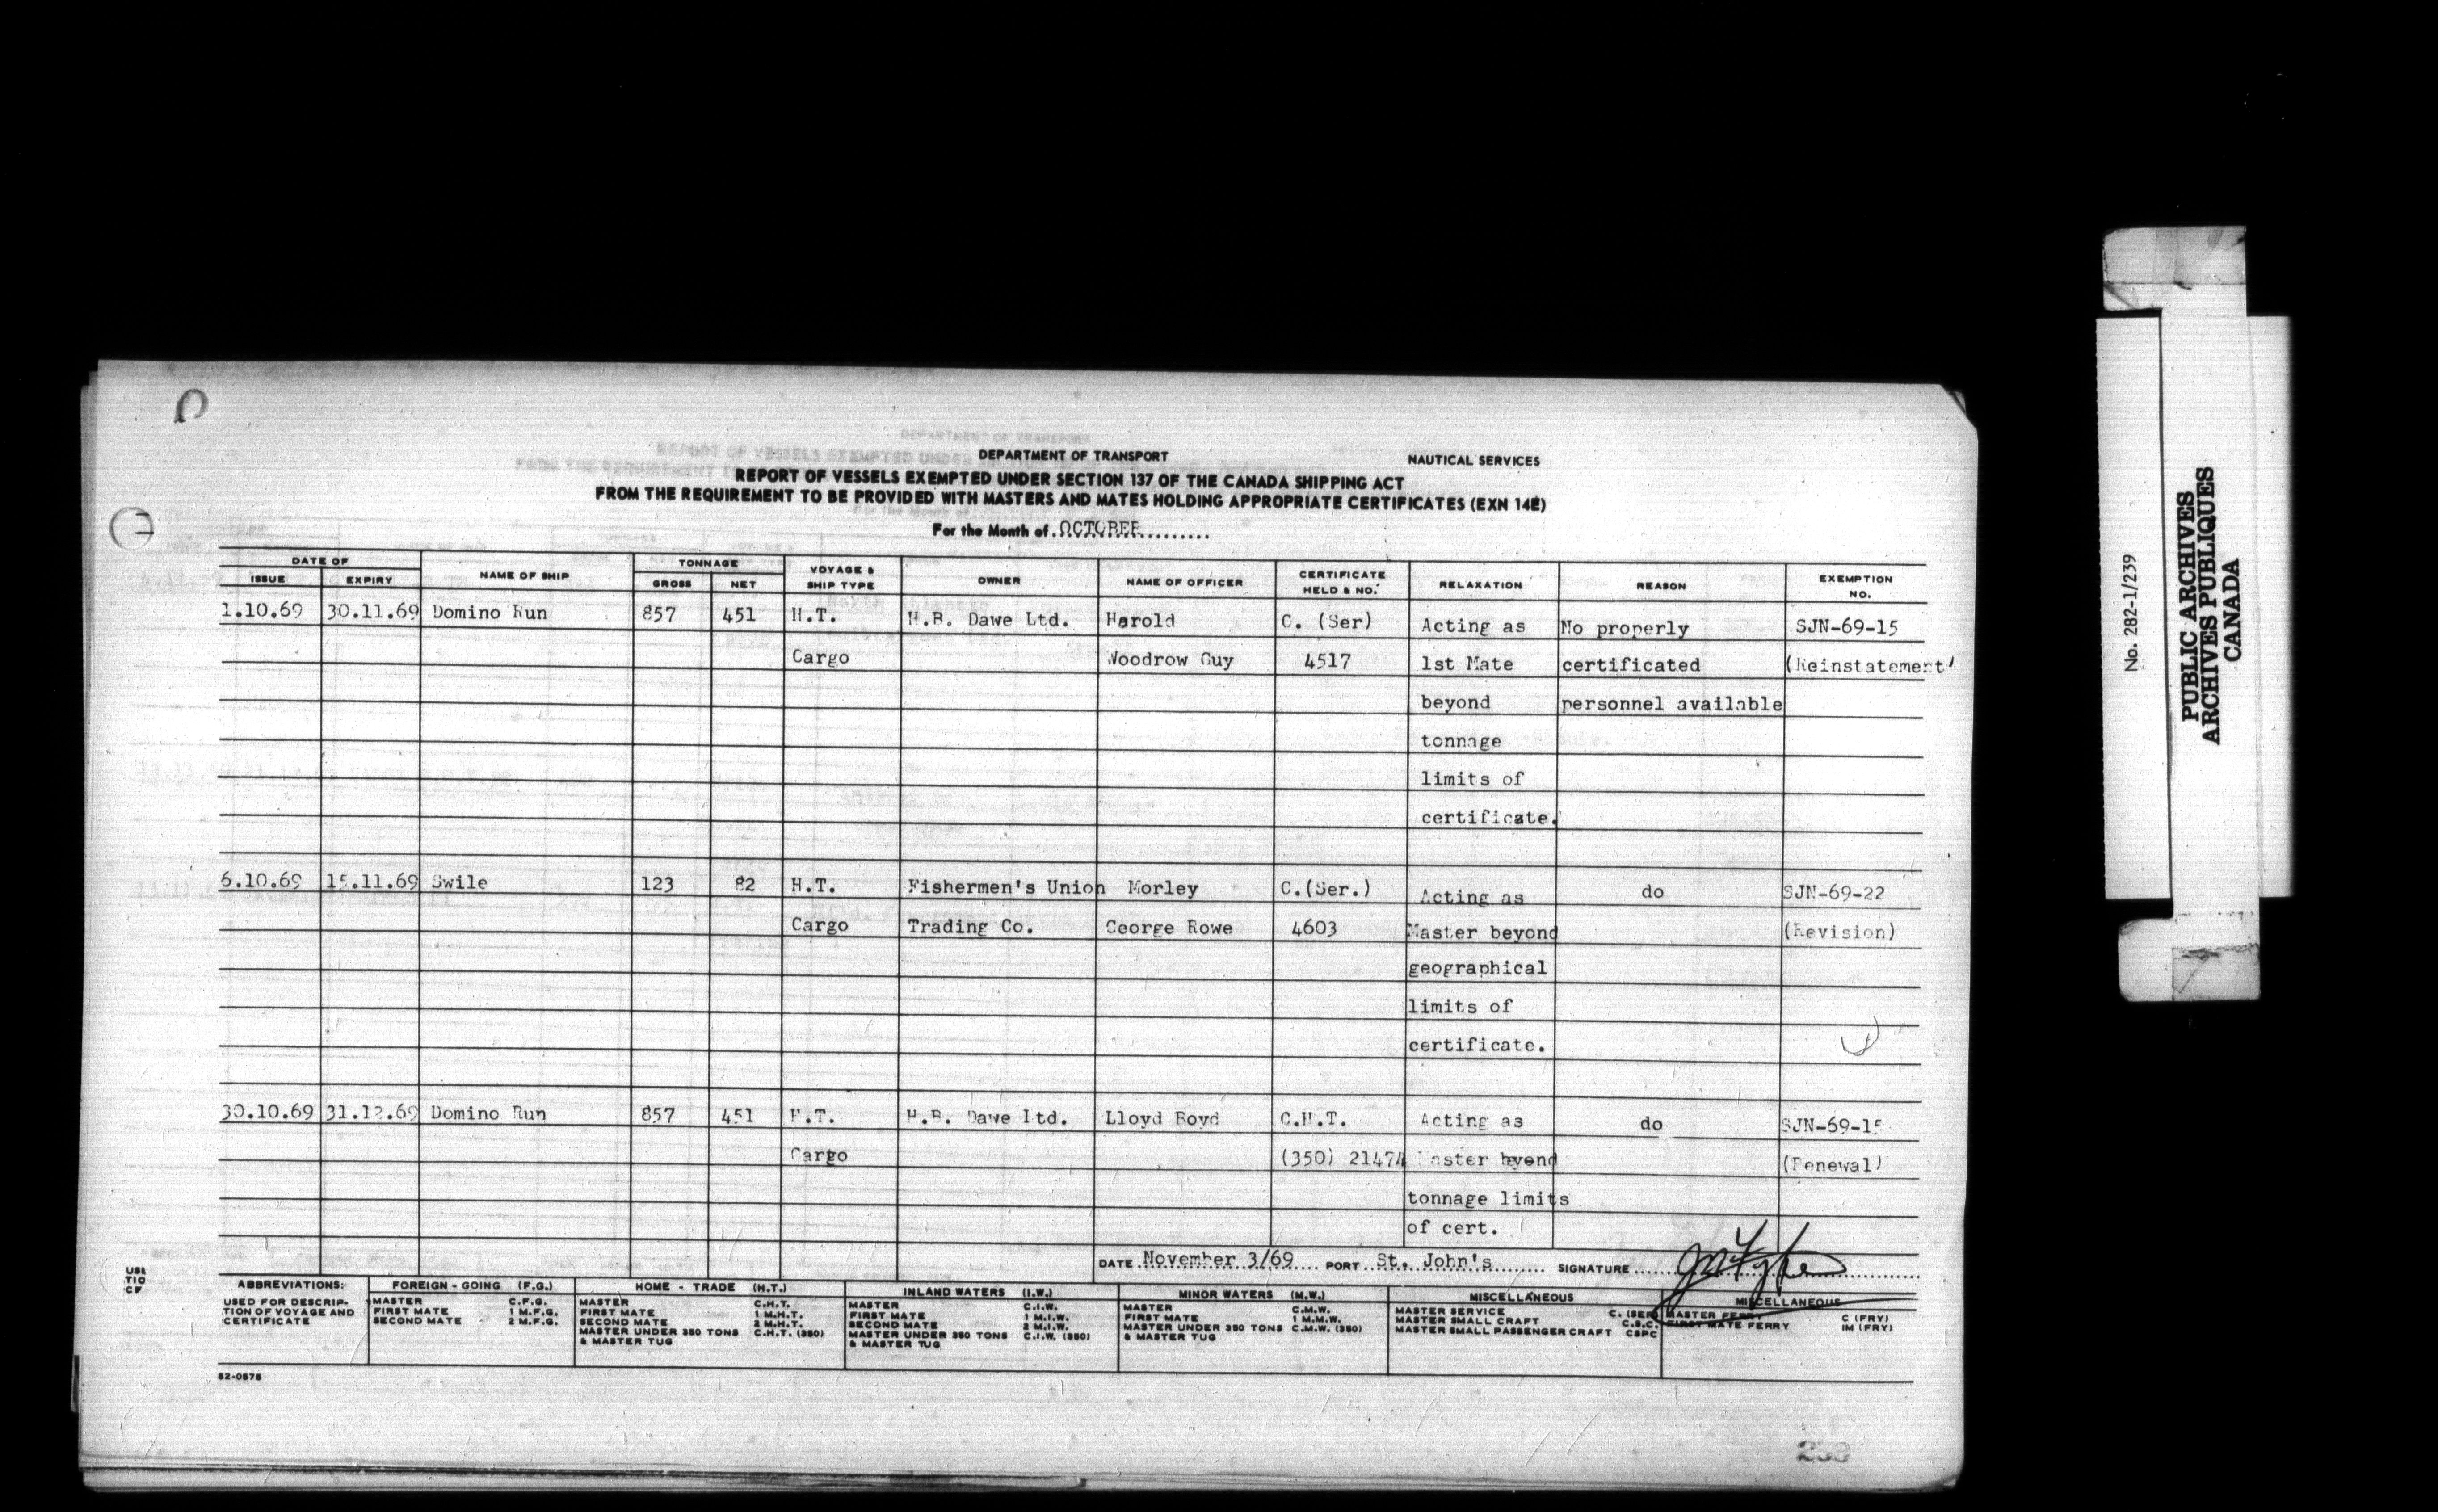 DEPARTMENT OF TRANSPORT
NAUTICAL SERVICES
REPORT OF VESSELS EXEMPTED UNDER SECTION 137 OF THE CANADA SHIPPING ACT
FROM THE REQUIREMENT TO BE PROVIDED WITH MASTERS AND MATES HOLDING APPROPRIATE CERTIFICATES (EXN 14E)
For the Month of OCTOBER
DATE OF NAME OF SHIP TONNAGE VOYAGE & SHIP TYPE OWNER NAME OF OFFICER CERTIFICATE HELD & NO. RELAXATION REASON EXEMPTION NO.
ISSUE EXPIRY GROSS NET
1.10.69 30.11.69 Domino Run 857 451 H.T. H.B. Dawe Ltd. Harold C. (Ser) Acting as No properly SJN-69-15
Cargo Woodrow Guy 4517 1st Mate certificated (Reinstatement)
beyond personnel available
tonnage
limits of
certificate.
6.10.69 15.11.69 Swile 123 82 H.T. Fishermen's Union Morley C.(Ser.) Acting as do SJN-69-22
Cargo Trading Co. George Rowe 4603 Master beyond (Revision)
geographical
limits of
certificate.
30.10.69 31.12.69 Domino Run 857 451 H.T. H.B. Dawe Ltd. Lloyd Boyd C.H.T. Acting as do SJN-69-15
Cargo (350) 21474 Master byond (Renewal)
tonnage limits
of cert.
DATE November 3/69 PORT St. John's SIGNATURE
ABBREVIATIONS:
USED FOR DESCRIP-
TION OF VOYAGE AND
CERTIFICATE
FOREIGN - GOING (F.G.)
MASTER C.F.G.
FIRST MATE 1 M.F.G.
SECOND MATE 2 M.F.G.
HOME - TRADE (H.T.)
MASTER C.H.T.
FIRST MATE 1 M.H.T.
SECOND MATE 2 M.H.T.
MASTER UNDER 350 TONS C.H.T. (350)
& MASTER TUG
INLAND WATERS (I.W.)
MASTER C.I.W.
FIRST MATE 1 M.I.W.
SECOND MATE 2 M.I.W.
MASTER UNDER 350 TONS C.I.W. (350)
& MASTER TUG
MINOR WATERS (M.W.)
MASTER C.M.W.
FIRST MATE 1 M.M.W.
MASTER UNDER 350 TONS C.M.W. (350)
& MASTER TUG
MISCELLANEOUS
MASTER SERVICE C. (SER)
MASTER SMALL CRAFT C.S.C.
MASTER SMALL PASSENGER CRAFT CSPC
MISCELLANEOUS
MASTER FERRY C (FRY)
FIRST MATE FERRY 1M (FRY)
82-0578
No. 282-1/239
PUBLIC ARCHIVES
ARCHIVES PUBLIQUES
CANADA